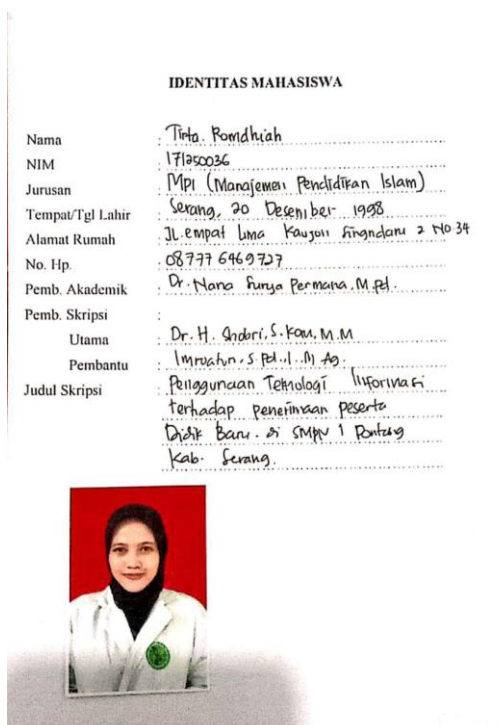 IDENTITAS MAHASISWA
Nama : Tirta Romdhiah
NIM : 171250036
Jurusan : MPI (Manajemen Pendidikan Islam)
Tempat/Tgl Lahir : Serang, 20 Desember 1998
Alamat Rumah : JL. empat lima Kaujon Singndaru 2 No 34
No. Hp. : 087776469727
Pemb. Akademik : Dr. Nana Surya Permana, M.Pd.
Pemb. Skripsi :
Utama : Dr. H. S. Kom, M.M
Pembantu : Imroatun, S.Pd.I., M Ag.
Judul Skripsi : Penggunaan Teknologi Informasi
terhadap penerimaan peserta
Didik Baru di SMPN 1 Pontang
Kab. Serang.